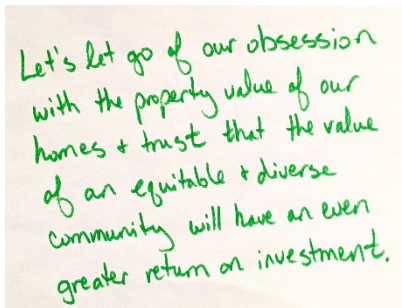 Let's let go of our obsession
with the property value of our
homes + trust that the value
of an equitable + diverse
community will have an even
greater return on investment.